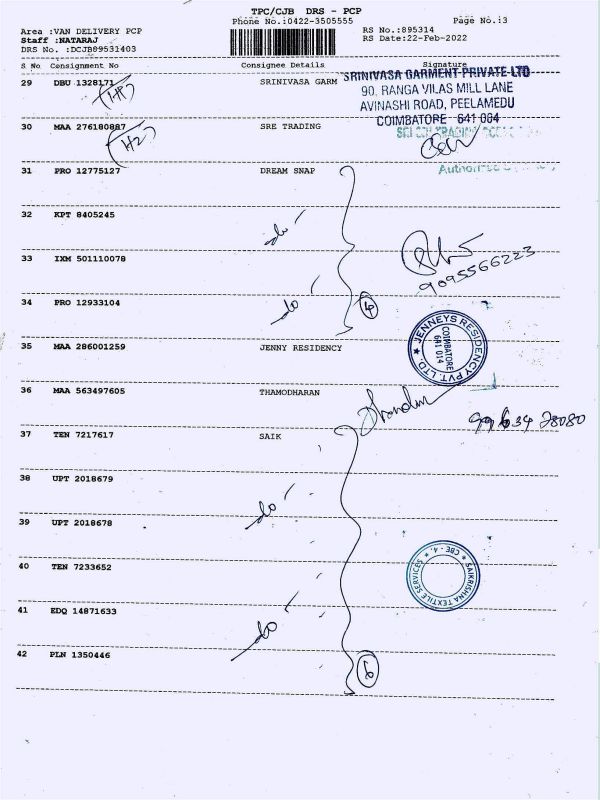 TPC/CJB DRS - PCP
Phone No.:0422-3505555
Page No.:3
Area :VAN DELIVERY PCP
Staff :NATARAJ
DRS No. :DCJB89531403
RS No.:895314
RS Date:22-Feb-2022
S No Consignment No Consignee Details Signature
29 DBU 1328171 SRINIVASA GARM
SRINIVASA GARMENT PRIVATE LTD
90. RANGA VILAS MILL LANE
AVINASHI ROAD, PEELAMEDU
COIMBATORE 641 004
30 MAA 276180887 SRE TRADING
(H2)
31 PRO 12775127 DREAM SNAP
32 KPT 8405245
do
33 IXM 501110078
9095566223
34 PRO 12933104
do
4
35 MAA 286001259 JENNY RESIDENCY
JENNEYS RESIDENCY PVT. LTD.
COIMBATORE
641 014
36 MAA 563497605 THAMODHARAN
37 TEN 7217617 SAIK
38 UPT 2018679
do
39 UPT 2018678
40 TEN 7233652
SAIKRISHNA TEXTILE SERVICES * CBE - 4. *
41 EDQ 14871633
do
42 PLN 1350446
6